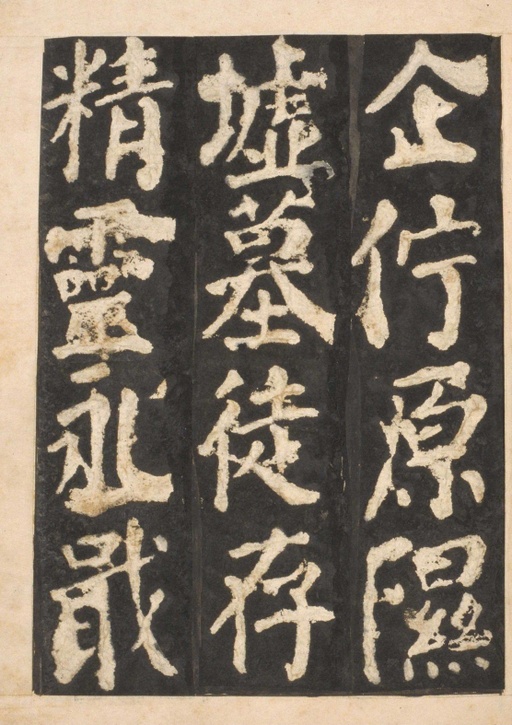 企佇原隰
墟墓徒存
精靈永戢